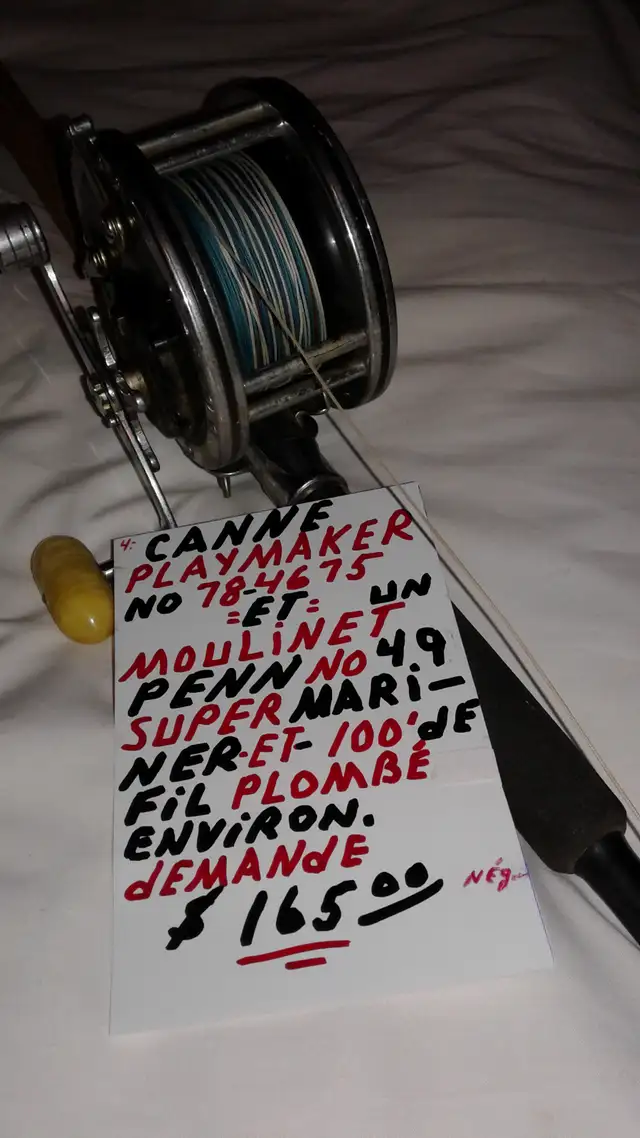 4: CANNE
PLAYMAKER
NO 78-4675
=ET= UN
MOULiNET
PENN NO 49
SUPER MARi-
NER-ET- 100' dE
FiL PLOMBÉ
ENViRON.
dEMANdE
$ 165 00